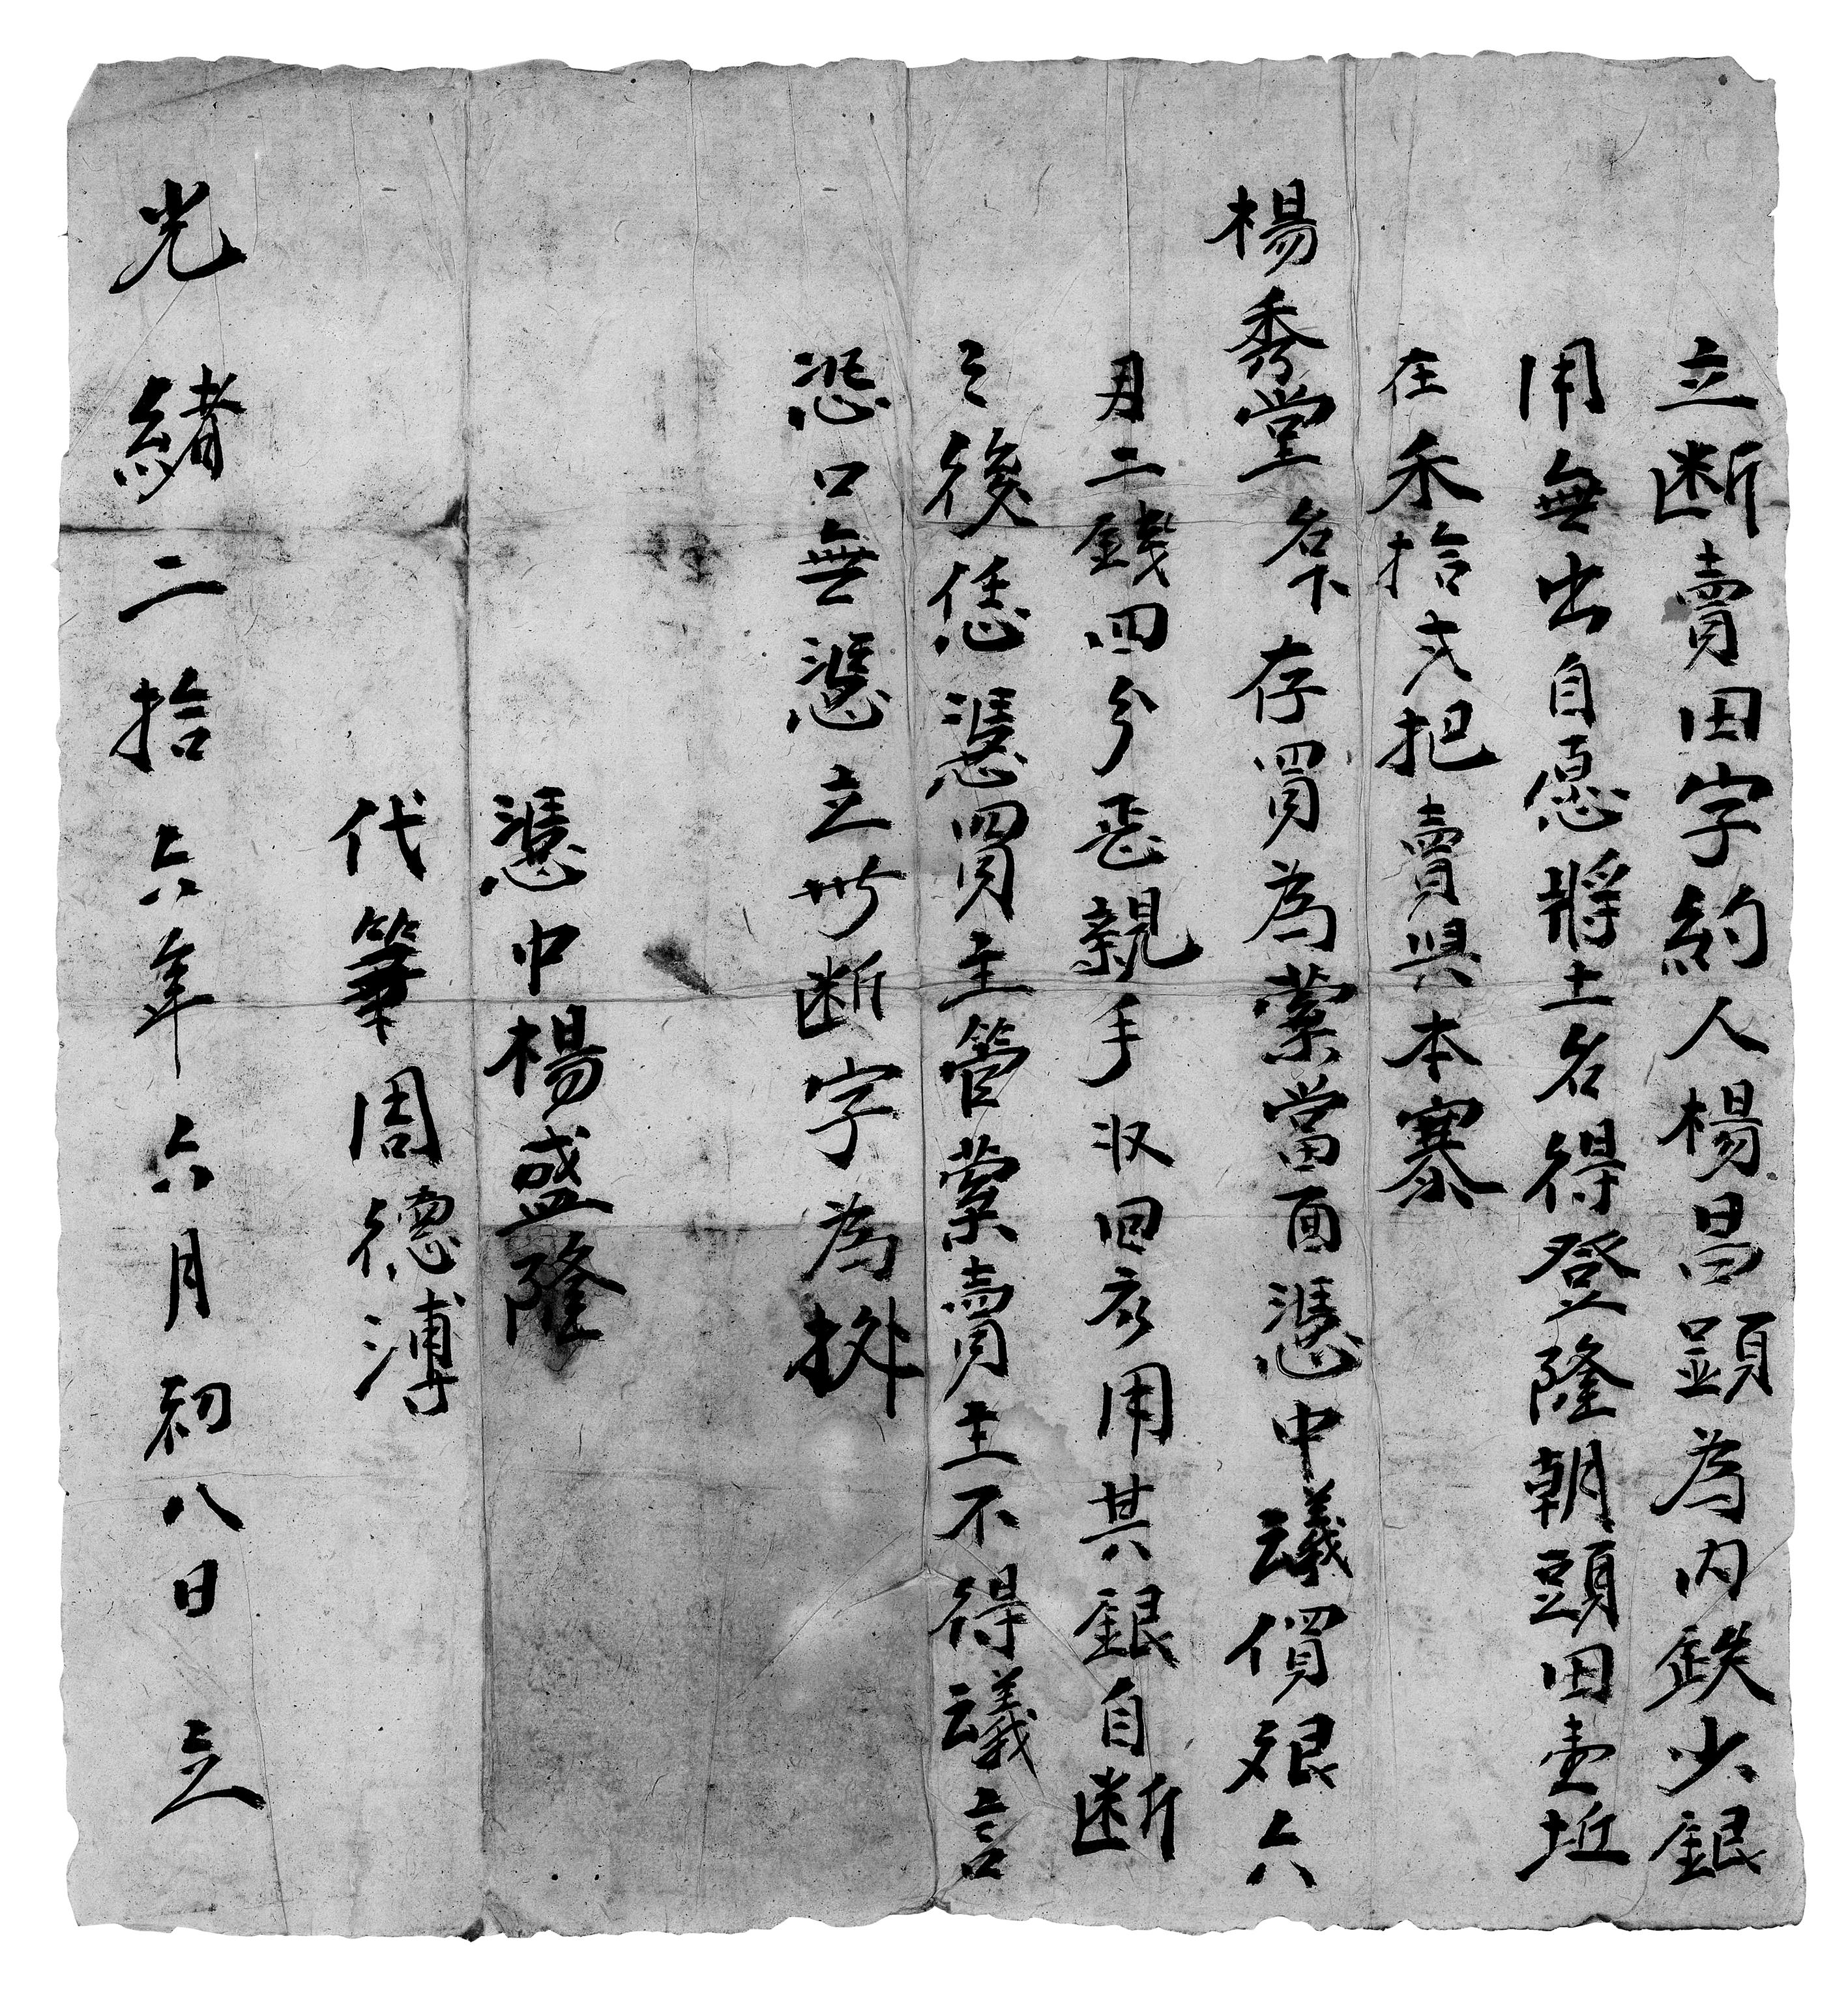 立断賣田字約人楊昌顕為内缺少銀
用無出自愿將土名得登隆朝頭田壹坵
在禾拾弍把賣與本寨
楊秀堂名下存買為業當面憑中議價銀六
月二錢四分恶親手収回应用其銀自断
之後恁憑買主管業賣主不得議言
恐口無憑立此断字為抛
憑中楊盛隆
代筆周德溥
光緒二拾六年六月初八日立